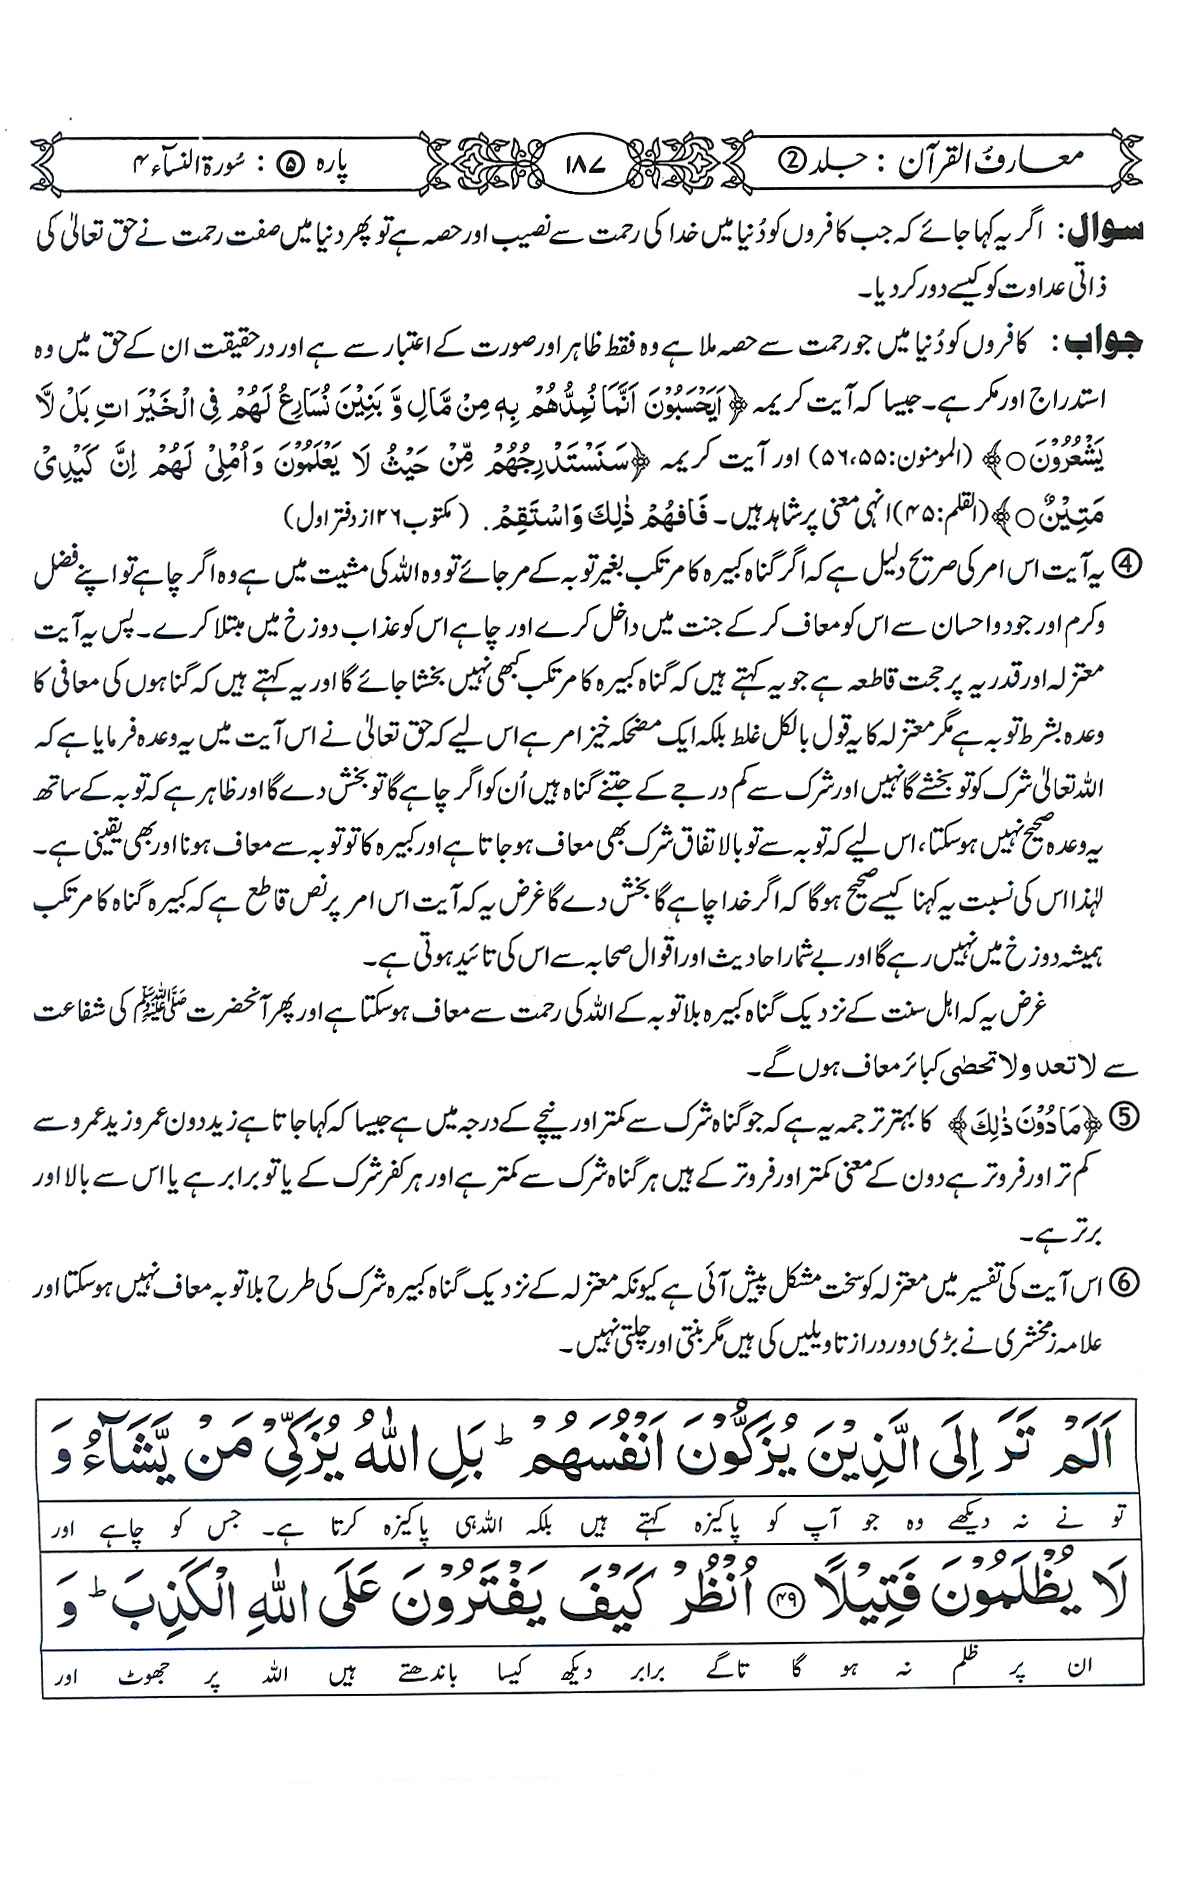 معارف القرآن : جلد ②
۱۸۷
پارہ ⑤ : سُورۃ النسآء ۴
سوال: اگر یہ کہا جائے کہ جب کافروں کو دُنیا میں خدا کی رحمت سے نصیب اور حصہ ہے تو پھر دنیا میں صفت رحمت نے حق تعالیٰ کی
ذاتی عداوت کو کیسے دور کر دیا۔
جواب: کافروں کو دُنیا میں جو رحمت سے حصہ ملا ہے وہ فقط ظاہر اور صورت کے اعتبار سے ہے اور درحقیقت ان کے حق میں وہ
استدراج اور مکر ہے۔ جیسا کہ آیت کریمہ ﴿اَيَحْسَبُوْنَ اَنَّمَا نُمِدُّهُمْ بِهٖ مِنْ مَّالٍ وَّ بَنِيْنَ نُسَارِعُ لَهُمْ فِى الْخَيْرَاتِ بَلْ لَّا
يَشْعُرُوْنَ○﴾ (المومنون:۵۵،۵۶) اور آیت کریمہ ﴿سَنَسْتَدْرِجُهُمْ مِّنْ حَيْثُ لَا يَعْلَمُوْنَ وَاُمْلِىْ لَهُمْ اِنَّ كَيْدِىْ
مَتِيْنٌ○﴾ (القلم:۴۵) انہی معنی پر شاہد ہیں۔ فَافْهُمْ ذٰلِكَ وَاسْتَقِمْ. (مکتوب ۲۶ از دفتر اول)
④ یہ آیت اس امر کی صریح دلیل ہے کہ اگر گناہ کبیرہ کا مرتکب بغیر توبہ کے مرجائے تو وہ اللہ کی مشیت میں ہے وہ اگر چاہے تو اپنے فضل
وکرم اور جود واحسان سے اس کو معاف کر کے جنت میں داخل کرے اور چاہے اس کو عذاب دوزخ میں مبتلا کرے۔ پس یہ آیت
معتزلہ اور قدریہ پر حجت قاطعہ ہے جو یہ کہتے ہیں کہ گناہ کبیرہ کا مرتکب کبھی نہیں بخشا جائے گا اور یہ کہتے ہیں کہ گناہوں کی معافی کا
وعدہ بشرط توبہ ہے مگر معتزلہ کا یہ قول بالکل غلط بلکہ ایک مضحکہ خیز امر ہے اس لیے کہ حق تعالیٰ نے اس آیت میں یہ وعدہ فرمایا ہے کہ
اللہ تعالیٰ شرک کو تو بخشے گا نہیں اور شرک سے کم درجے کے جتنے گناہ ہیں اُن کو اگر چاہے گا تو بخش دے گا اور ظاہر ہے کہ توبہ کے ساتھ
یہ وعدہ صحیح نہیں ہوسکتا، اس لیے کہ توبہ سے تو بالاتفاق شرک بھی معاف ہوجاتا ہے اور کبیرہ کا تو توبہ سے معاف ہونا اور بھی یقینی ہے۔
لہٰذا اس کی نسبت یہ کہنا کیسے صحیح ہوگا کہ اگر خدا چاہے گا بخش دے گا غرض یہ کہ آیت اس امر پر نص قاطع ہے کہ کبیرہ گناہ کا مرتکب
ہمیشہ دوزخ میں نہیں رہے گا اور بے شمار احادیث اور اقوال صحابہ سے اس کی تائید ہوتی ہے۔
غرض یہ کہ اہل سنت کے نزدیک گناہ کبیرہ بلا توبہ کے اللہ کی رحمت سے معاف ہوسکتا ہے اور پھر آنحضرت ﷺ کی شفاعت
سے لاتعد ولا تحصٰی کبائر معاف ہوں گے۔
⑤ ﴿مَادُوْنَ ذٰلِكَ﴾ کا بہتر ترجمہ یہ ہے کہ جو گناہ شرک سے کمتر اور نیچے کے درجہ میں ہے جیسا کہ کہا جاتا ہے زید دون عمرو زید عمرو سے
کم تر اور فروتر ہے دون کے معنی کمتر اور فروتر کے ہیں ہر گناہ شرک سے کمتر ہے اور ہر کفر شرک کے یا تو برابر ہے یا اس سے بالا اور
برتر ہے۔
⑥ اس آیت کی تفسیر میں معتزلہ کو سخت مشکل پیش آئی ہے کیونکہ معتزلہ کے نزدیک گناہ کبیرہ شرک کی طرح بلا توبہ معاف نہیں ہوسکتا اور
علامہ زمخشری نے بڑی دور دراز تاویلیں کی ہیں مگر بنتی اور چلتی نہیں۔
اَلَمْ تَرَ اِلَى الَّذِيْنَ يُزَكُّوْنَ اَنْفُسَهُمْ ؕ بَلِ اللّٰهُ يُزَكِّىْ مَنْ يَّشَآءُ وَ
تو نے نہ دیکھے وہ جو آپ کو پاکیزہ کہتے ہیں بلکہ اللہ ہی پاکیزہ کرتا ہے۔ جس کو چاہے اور
لَا يُظْلَمُوْنَ فَتِيْلًا ﴿۴۹﴾ اُنْظُرْ كَيْفَ يَفْتَرُوْنَ عَلَى اللّٰهِ الْكَذِبَ ؕ وَ
ان پر ظلم نہ ہو گا تاگے برابر دیکھ کیسا باندھتے ہیں اللہ پر جھوٹ اور